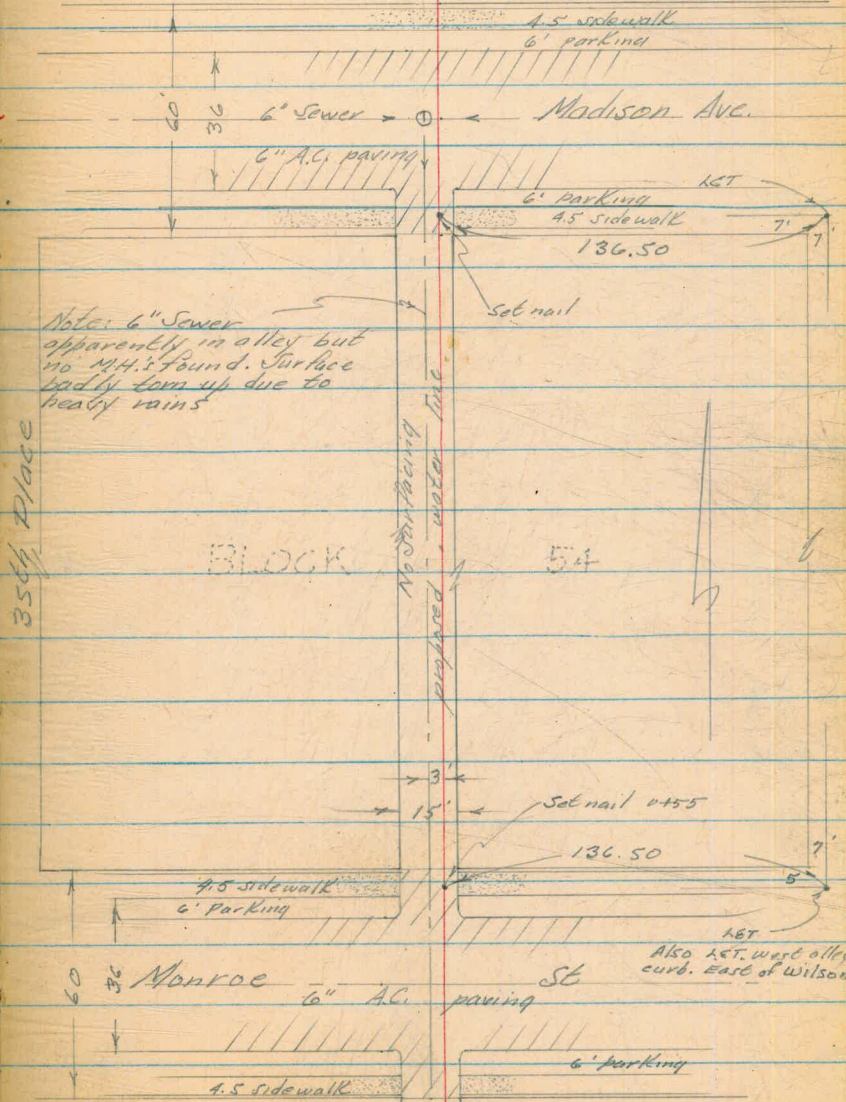 4.5 sidewalk
6' parking
60'
36
6" Sewer
Madison Ave.
6" A.C. paving
L&T
6' parking
4.5 sidewalk
7'
7'
136.50
Set nail
Note: 6" Sewer
apparently in alley but
no M.H.'s found. Surface
badly torn up due to
heavy rains
35th Place
No surfacing
proposed water line
BLOCK 54
3'
15'
Set nail 0+55
136.50
7'
5'
4.5 sidewalk
6' Parking
L&T
Also L&T. west alley
curb. East of Wilson
60
36
Monroe St
6" A.C. paving
6' parking
4.5 sidewalk